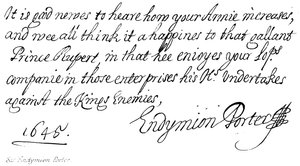 It is gad nerves to heare how your Annie increases,
and wee all think it a happines to that gallant
Prince Rupert, in that hee enjoyes your lops
companie in those enterprises his Hs. undertakes
against the Kings Enemies,
Endymion Porter
1645.
Sir Endymion Porter